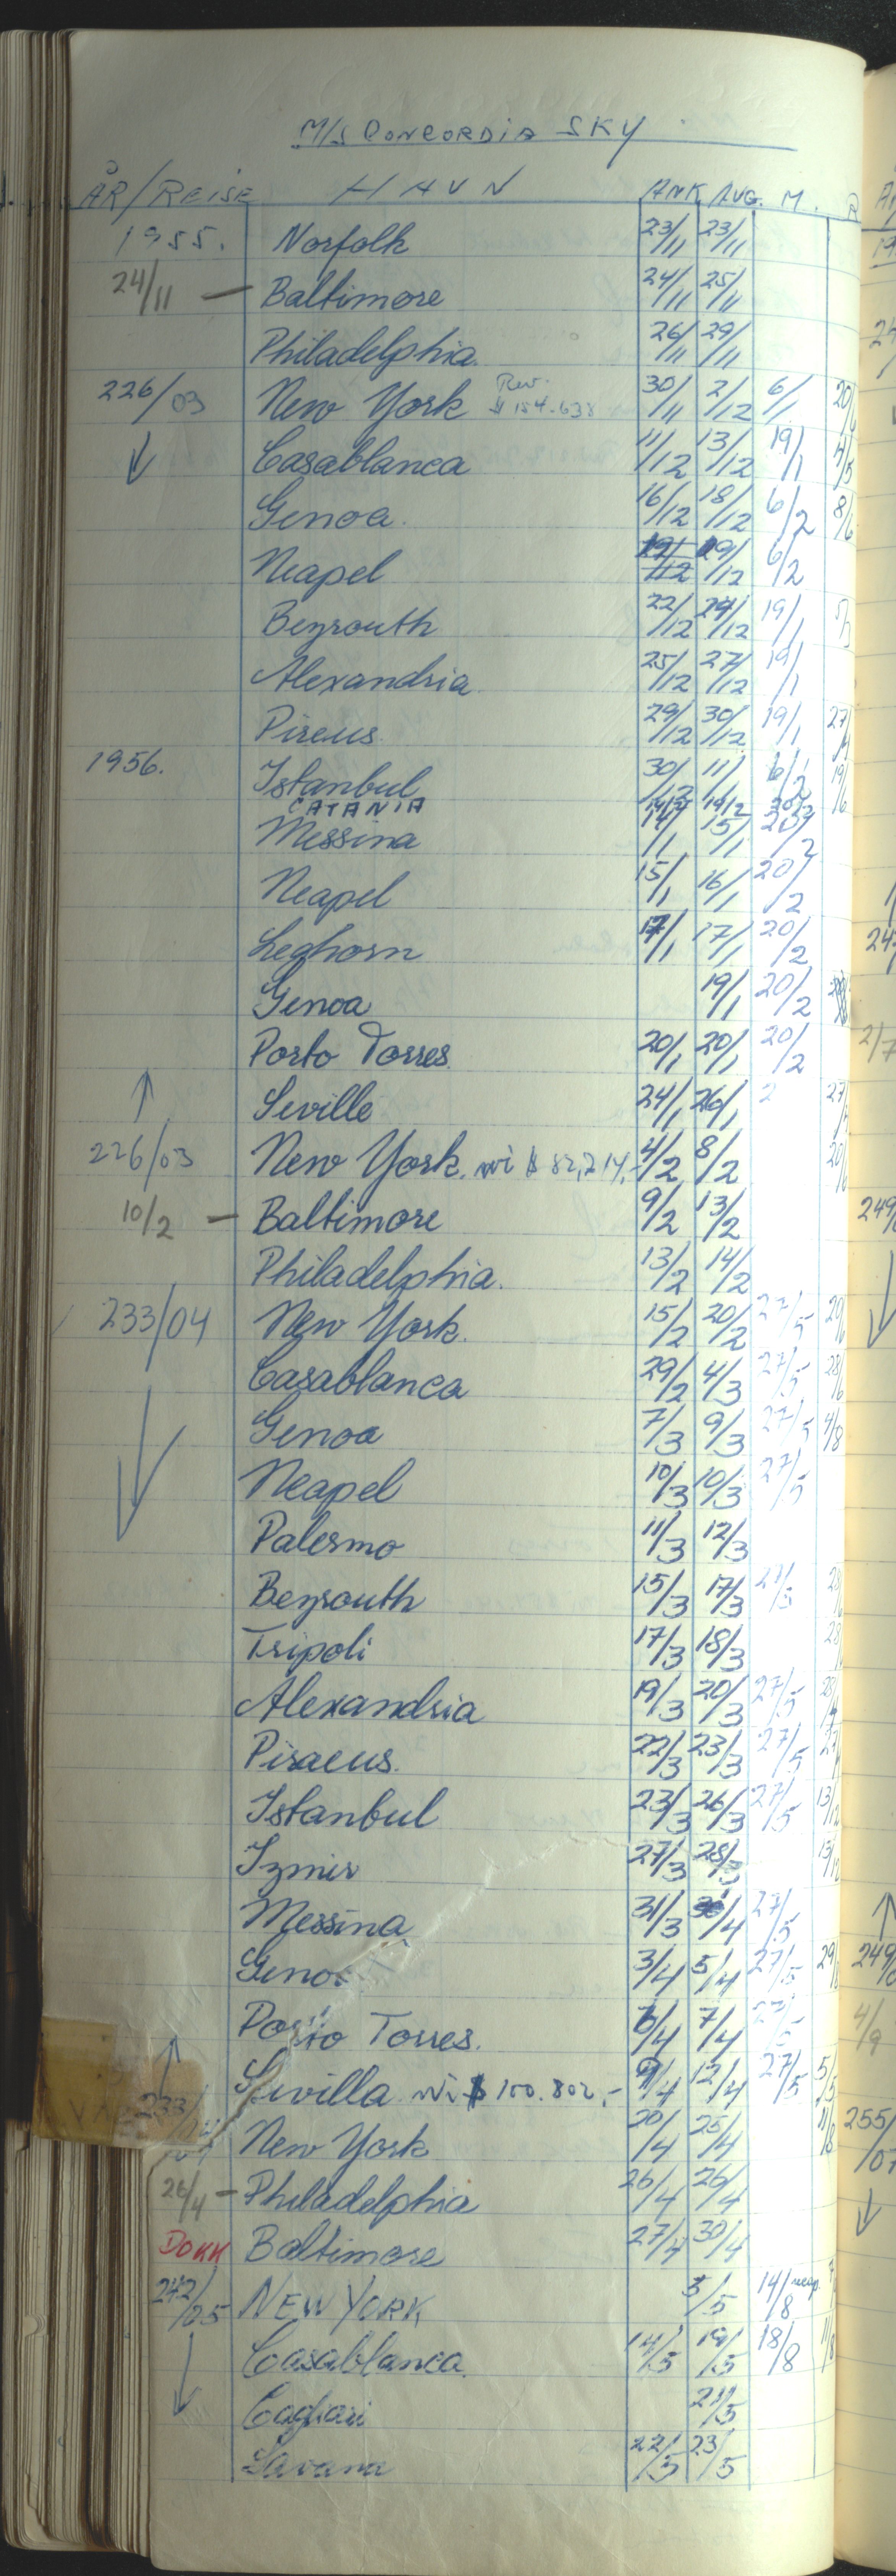 M/S CONCORDIA SKY
ÅR/REISE HAVN ANK. AVG. M.
1955. Norfolk 23/11 23/11
24/11 — Baltimore 24/11 25/11
Philadelphia. 26/11 29/11
226/03 New York Rev. $ 154.638 30/11 2/12 6/1
↓ Casablanca 11/12 13/12 19/1
Genoa. 16/12 18/12 6/2
Neapel 19/12 6/2
Beyrouth 22/12 24/12 19/1
Alexandria 25/12 27/12 19/1
Pireus. 29/12 30/12 19/1
1956. Istanbul 30/12 11/1 6/2
CATANIA
Messina 14/1 15/1
Neapel 15/1 16/1 20/2
Leghorn 17/1 17/1 20/2
Genoa 19/1 20/2
Porto Torres. 20/1 20/1 20/2
↑ Seville 24/1 26/1 2
226/03 New York. 4/2 8/2
10/2 — Baltimore 9/2 13/2
Philadelphia. 13/2 14/2
233/04 New York. 15/2 20/2 27/5
Casablanca 29/2 4/3 27/5 28/6
↓ Genoa 7/3 9/3 27/5 4/8
Neapel 10/3 10/3 27/5
Palermo 11/3 12/3
Beyrouth 15/3 17/3
Tripoli 17/3 18/3
Alexandria 19/3 20/3 27/5
Piraeus. 22/3 23/3 27/5
Istanbul 23/3 26/3 27/5 13/12
Izmir 27/3 28/3 13/12
Messina 31/3 27/5
Genoa 3/4 5/4 27/5
Porto Torres. 6/4 7/4
↑ Sevilla $ 100.802,- 9/4 12/4 27/5
233/ New York 20/4 25/4
26/4 — Philadelphia 26/4 26/4
DOKK Baltimore 27/4 30/4
242/05 NEW YORK 5/5 14/8
↓ Casablanca. 14/5 19/5 18/8
Cagliari 21/5
Savana 22/5 23/5